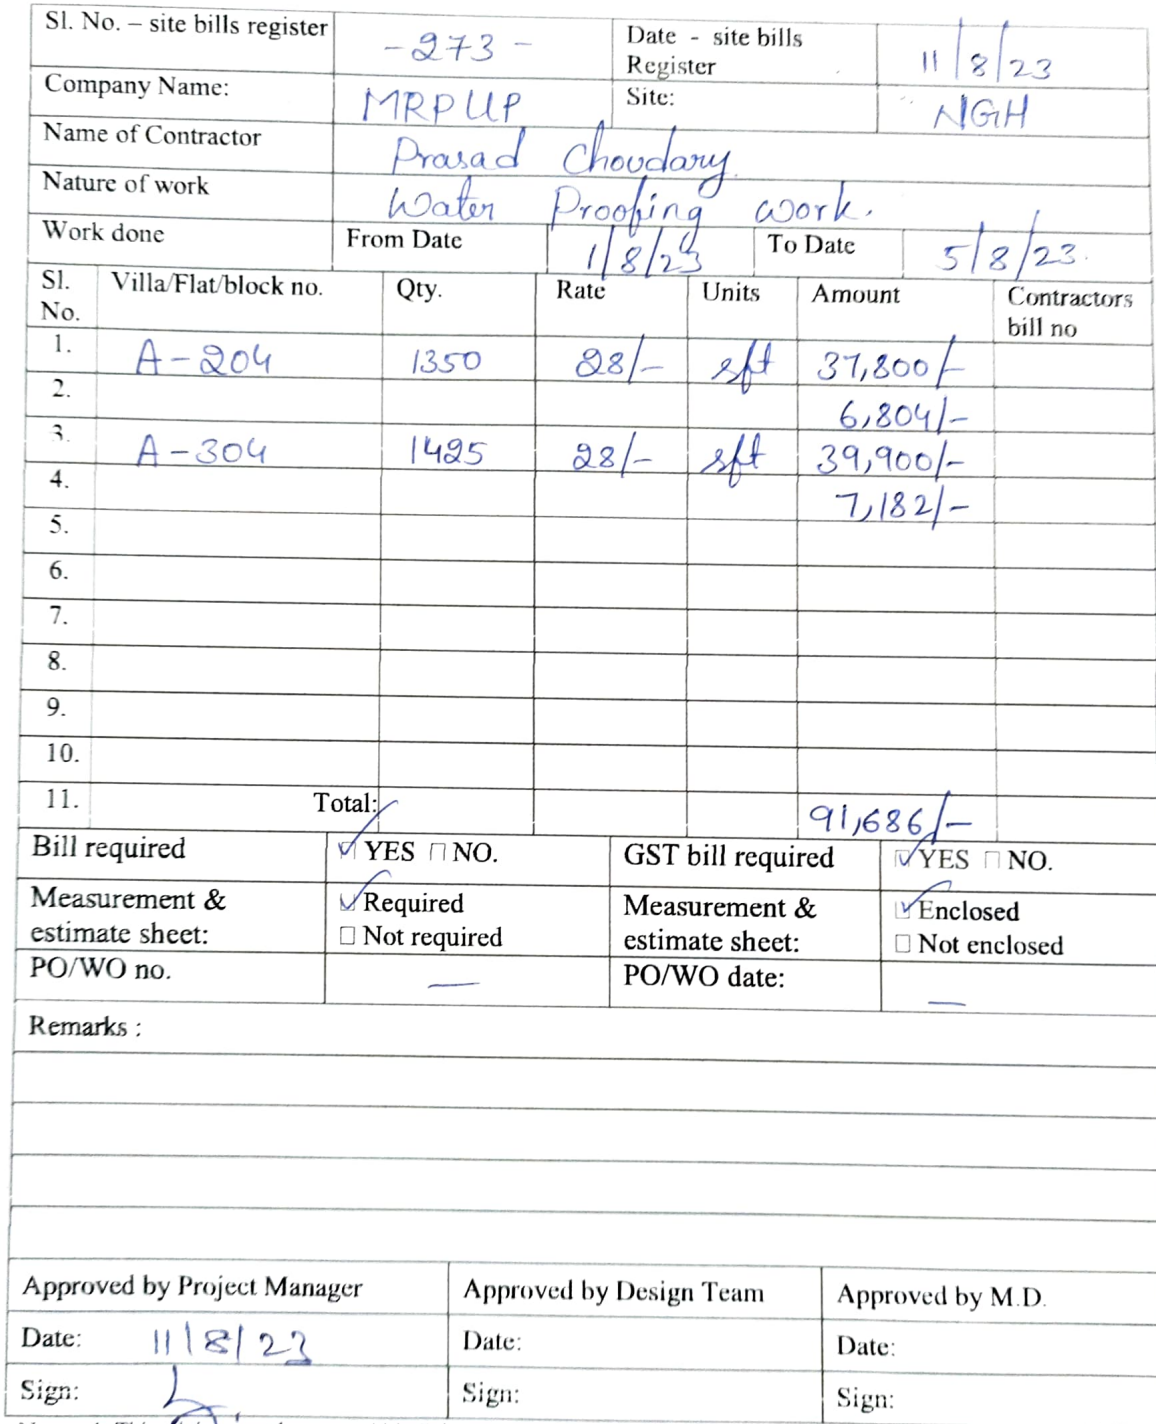 Sl. No. – site bills register -273- Date - site bills Register 11/8/23
Company Name: MRPUP Site: NGH
Name of Contractor Prasad Choudary
Nature of work Water Proofing work.
Work done From Date 1/8/23 To Date 5/8/23.
Sl. No. Villa/Flat/block no. Qty. Rate Units Amount Contractors bill no
1. A-204 1350 28/- sft 37,800/-
2. 6,804/-
3. A-304 1425 28/- sft 39,900/-
4. 7,182/-
5.
6.
7.
8.
9.
10.
11. Total: 91,686/-
Bill required ☑ YES □ NO. GST bill required ☑ YES □ NO.
Measurement & estimate sheet: ☑ Required □ Not required Measurement & estimate sheet: ☑ Enclosed □ Not enclosed
PO/WO no. — PO/WO date: —
Remarks :
Approved by Project Manager Approved by Design Team Approved by M.D.
Date: 11/8/23 Date: Date:
Sign: Sign: Sign: